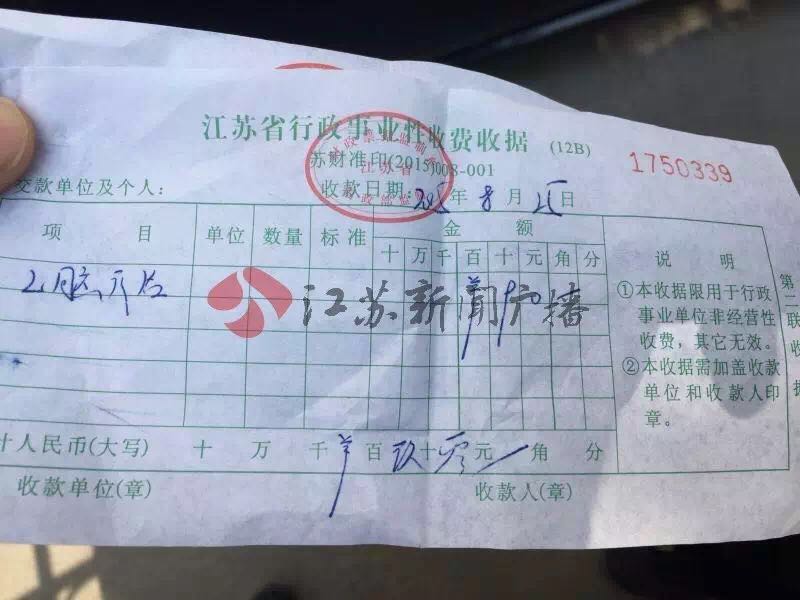 江苏省行政事业性收费收据 (12B)
1750339
苏财准印(2015)008-001
交款单位及个人:
收款日期: 2015 年 8 月 25 日
项 目 单位 数量 标准 金 额
十 万 千 百 十 元 角 分
说 明
¥ 9 0
①本收据限用于行政
事业单位非经营性
收费，其它无效。
②本收据需加盖收款
单位和收款人印
章。
第二联收据
江苏新闻广播
计人民币(大写) 十 万 千 ¥ 百 玖 十 零 元 角 分
收款单位(章) 收款人(章)